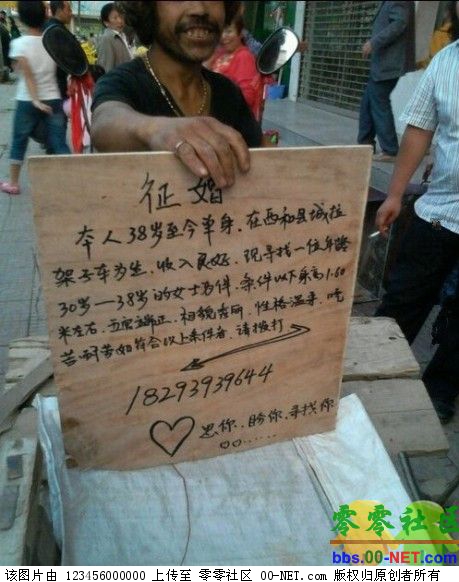 征婚
本人38岁至今单身.在西和县城拉
架子车为生.收入良好.现寻找一位年龄
30岁—38岁的女士为伴.条件以下身高1.60
米左右.五官端正.相貌秀丽.性格温柔.吃
苦耐劳如符合以上条件者.请拨打
18293939644
思你.盼你.寻找你
零零社区
bbs.00-NET.com
该图片由 123456000000 上传至 零零社区 00-NET.com 版权归原创者所有